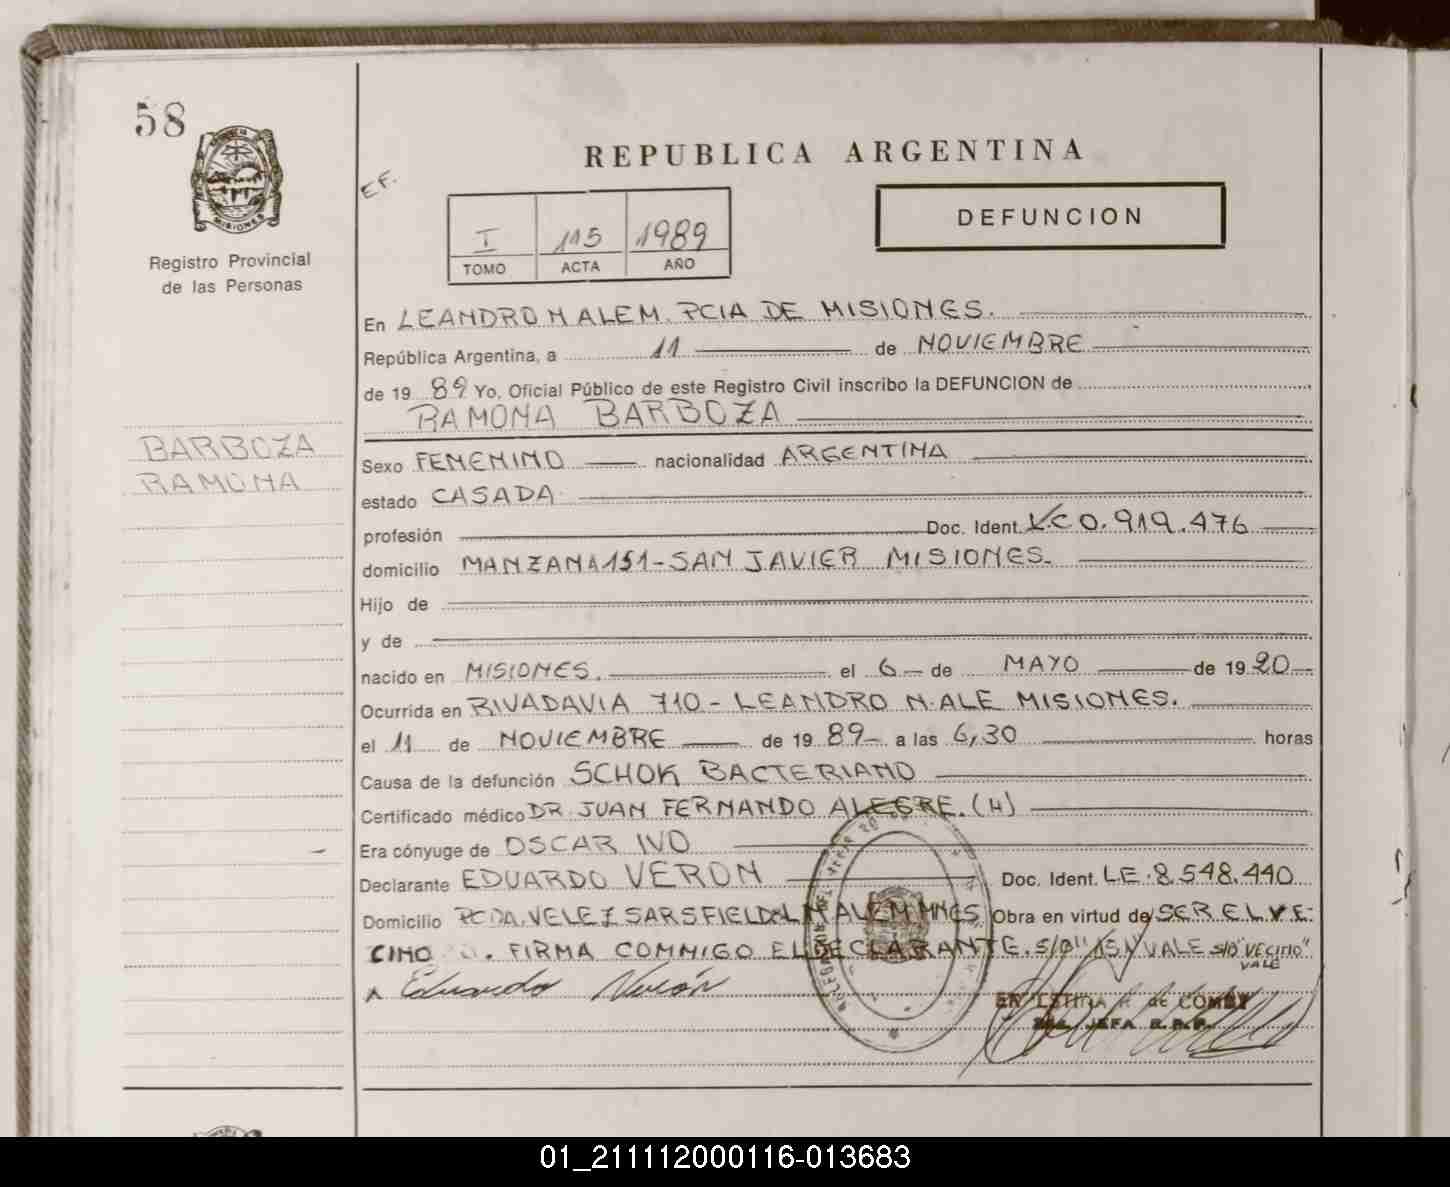 58
MISIONES
Registro Provincial
de las Personas
BARBOZA
RAMONA
REPUBLICA ARGENTINA
EF.
I 115 1989
TOMO ACTA AÑO
DEFUNCION
En LEANDRO N ALEM. PCIA DE MISIONES.
República Argentina, a 11 de NOVIEMBRE
de 19 89 Yo, Oficial Público de este Registro Civil inscribo la DEFUNCION de
RAMONA BARBOZA
Sexo FEMENINO nacionalidad ARGENTINA
estado CASADA
profesión Doc. Ident. 0.919.476
domicilio MANZANA 151-SAN JAVIER MISIONES.
Hijo de
y de
nacido en MISIONES. el 6 de MAYO de 19 20
Ocurrida en RIVADAVIA 710 - LEANDRO N. ALE MISIONES.
el 11 de NOVIEMBRE de 19 89 a las 6,30 horas
Causa de la defunción SCHOK BACTERIANO
Certificado médico DR. JUAN FERNANDO ALEGRE. (H)
Era cónyuge de OSCAR IVO
Declarante EDUARDO VERON Doc. Ident. LE. 8.548.440
Domicilio PCDA. VELEZ SARSFIELD L N ALEM MNES Obra en virtud de SER EL VE-
CINO FIRMA CONMIGO EL DECLARANTE. S/B VALE S/B "VECINO"
VALE
Eduardo Verón
de COMBY
JEFA R.P.P.
01_211112000116-013683